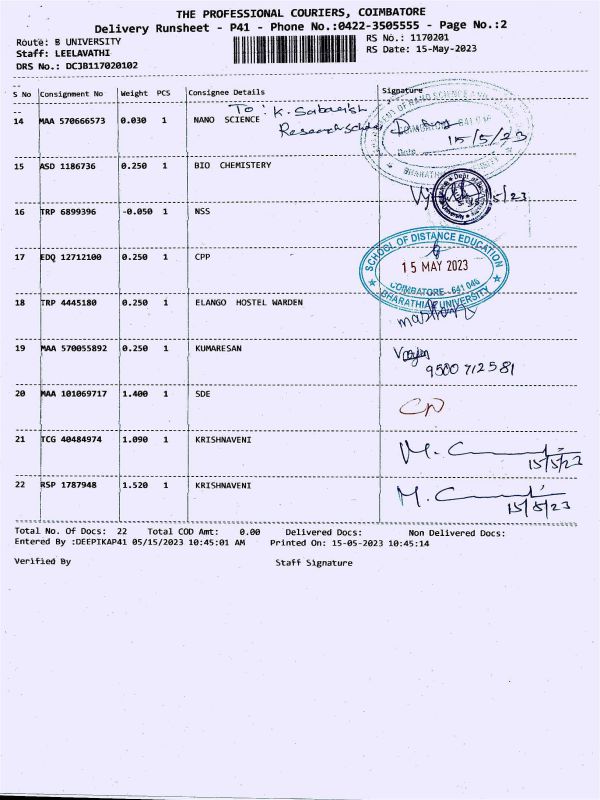 THE PROFESSIONAL COURIERS, COIMBATORE
Delivery Runsheet - P41 - Phone No.:0422-3505555 - Page No.:2
Route: B UNIVERSITY RS No.: 1170201
Staff: LEELAVATHI RS Date: 15-May-2023
DRS No.: DCJB117020102
S No Consignment No Weight PCS Consignee Details Signature
To: K. Sabarish
14 MAA 570666573 0.030 1 NANO SCIENCE
Research Scholar
15/5/23
Date
15 ASD 1186736 0.250 1 BIO CHEMISTERY
15/23
16 TRP 6899396 -0.050 1 NSS
SCHOOL OF DISTANCE EDUCATION
17 EDQ 12712100 0.250 1 CPP
15 MAY 2023
COIMBATORE - 641 046
BHARATHIAR UNIVERSITY
18 TRP 4445180 0.250 1 ELANGO HOSTEL WARDEN
19 MAA 570055892 0.250 1 KUMARESAN
9500712581
20 MAA 101069717 1.400 1 SDE
21 TCG 40484974 1.090 1 KRISHNAVENI
15/5/23
22 RSP 1787948 1.520 1 KRISHNAVENI
15/5/23
Total No. Of Docs: 22 Total COD Amt: 0.00 Delivered Docs: Non Delivered Docs:
Entered By :DEEPIKAP41 05/15/2023 10:45:01 AM Printed On: 15-05-2023 10:45:14
Verified By Staff Signature